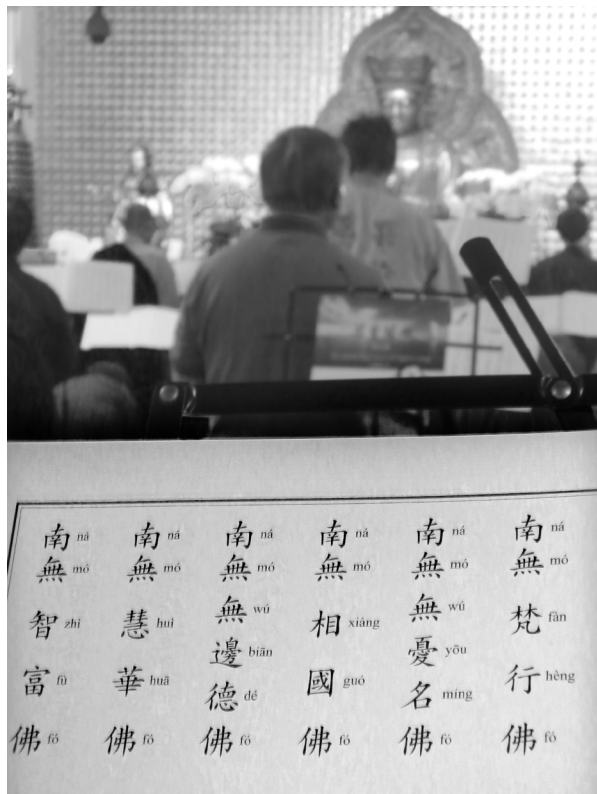 南 ná 無 mó 梵 fàn 行 hèng 佛 fó
南 ná 無 mó 無 wú 憂 yōu 名 míng 佛 fó
南 ná 無 mó 相 xiàng 國 guó 佛 fó
南 ná 無 mó 無 wú 邊 biān 德 dé 佛 fó
南 ná 無 mó 慧 huì 華 huā 佛 fó
南 ná 無 mó 智 zhì 富 fù 佛 fó